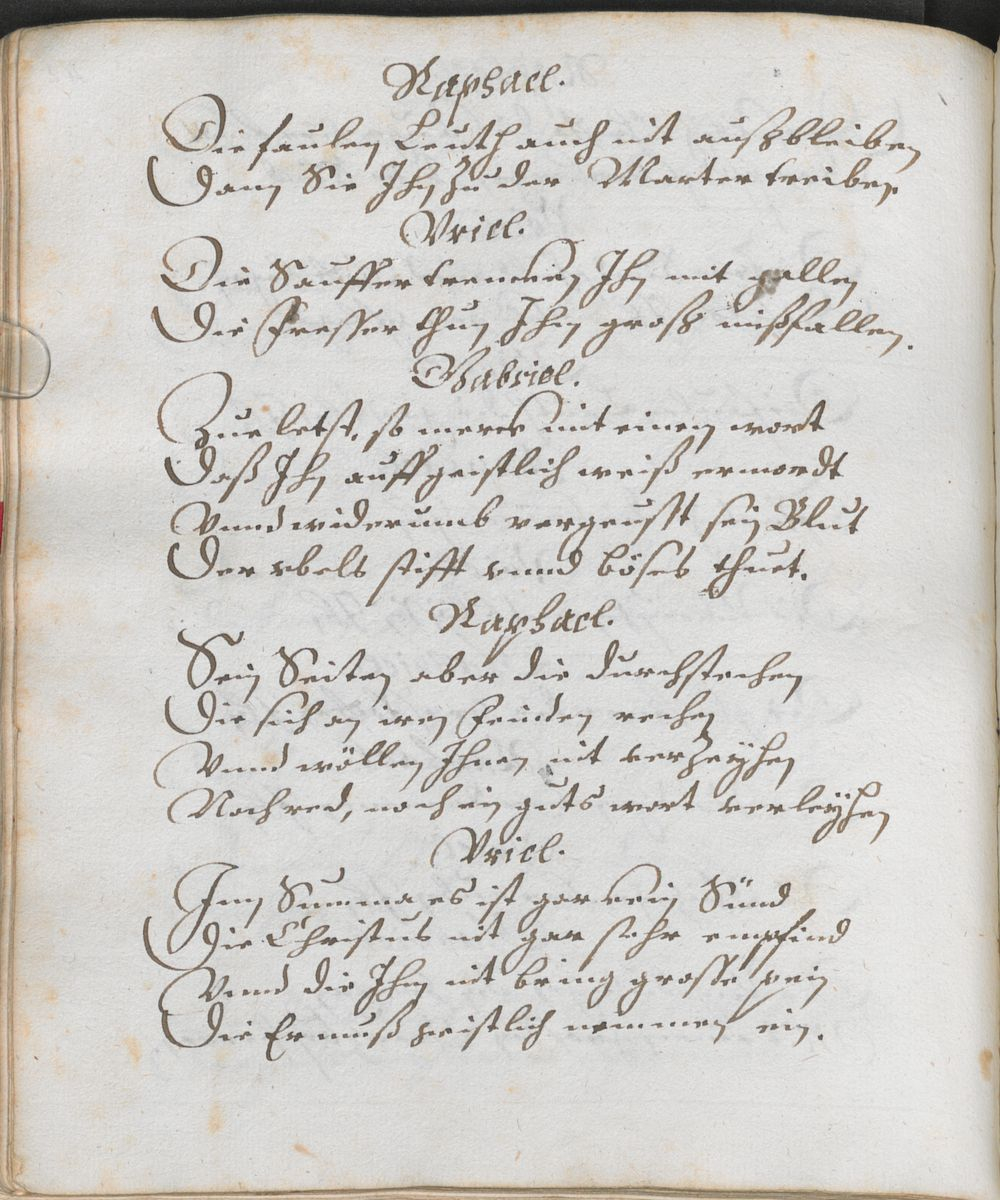 Raphael.
Die faulen Leuth auch nit außbleiben
Dann Sie Ihn zu der Marter treiben
Vriel.
Die Sauffer trencken Ihn mit gallen
Die Fresser thun Ihm groß mißfallen.
Gabriel.
Zue letst, so merck mit einem wort
Daß Ihn auff geistlich weiß ermordt
Vnnd widerumb vergeusst sein Blut
Der vbels stifft vnnd böses thuet.
Raphael.
Sein Seiten aber die durchstechen
Die sich an iren Feinden rechen
Vnnd wöllen Ihnen nit verzeyhen
Noch red, noch ein guts wort verleyhen
Vriel.
Inn Summa es ist gar kein Sünd
Die Christus nit gar sehr empfind
Vnnd die Ihm nit bring grosse pein
Die Er muß geistlich nemmen ein.